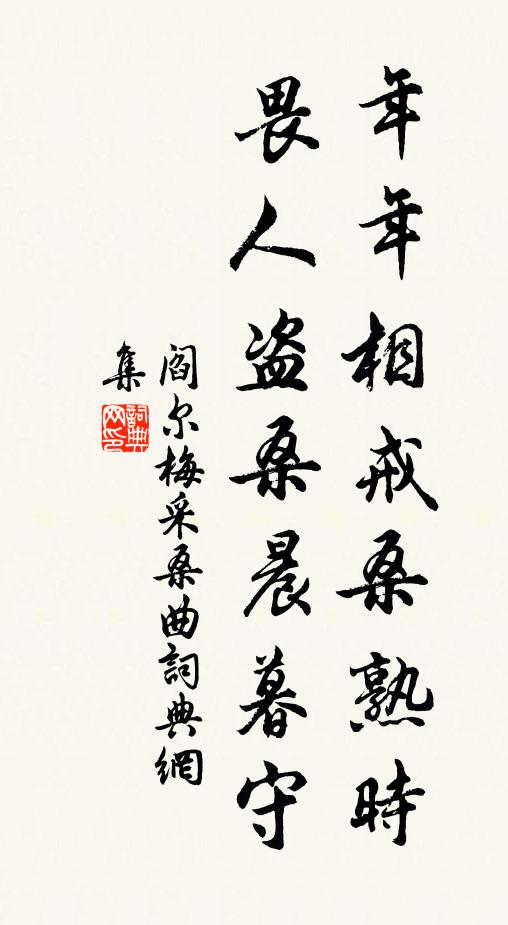 年年相戒桑熟時
畏人盜桑晨暮守
閻尔梅采桑曲詞典網
集
詞典
网印